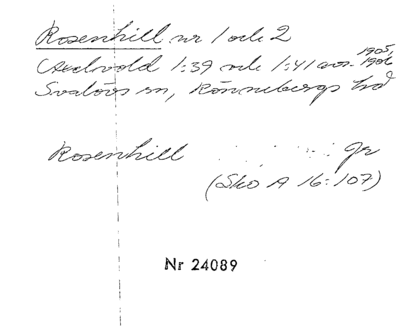 Rosenhill nr 1 och 2
Axelvold 1:39 och 1:41 avs. 1905, 1906
Svalövs sn, Rönnebergs hd
Rosenhill gr
(Sko A 16:107)
Nr 24089